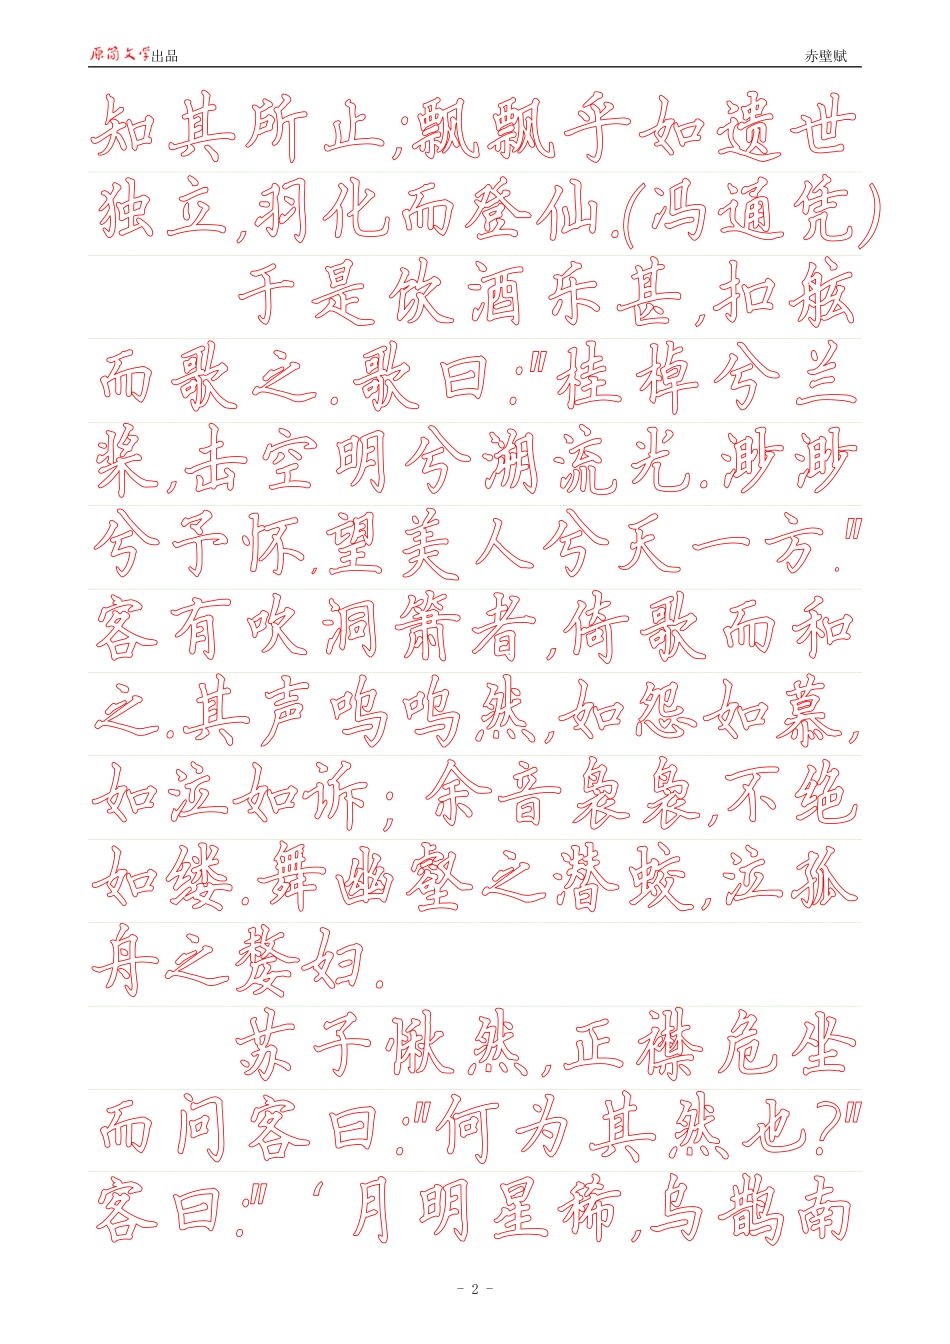 原简文学出品 赤壁赋
知其所止;飘飘乎如遗世
独立,羽化而登仙.(冯通凭)
于是饮酒乐甚,扣舷
而歌之.歌曰:"桂棹兮兰
桨,击空明兮溯流光.渺渺
兮予怀,望美人兮天一方."
客有吹洞箫者,倚歌而和
之.其声呜呜然,如怨如慕,
如泣如诉;余音袅袅,不绝
如缕.舞幽壑之潜蛟,泣孤
舟之嫠妇.
苏子愀然,正襟危坐
而问客曰:"何为其然也?"
客曰:"‘月明星稀,乌鹊南
- 2 -